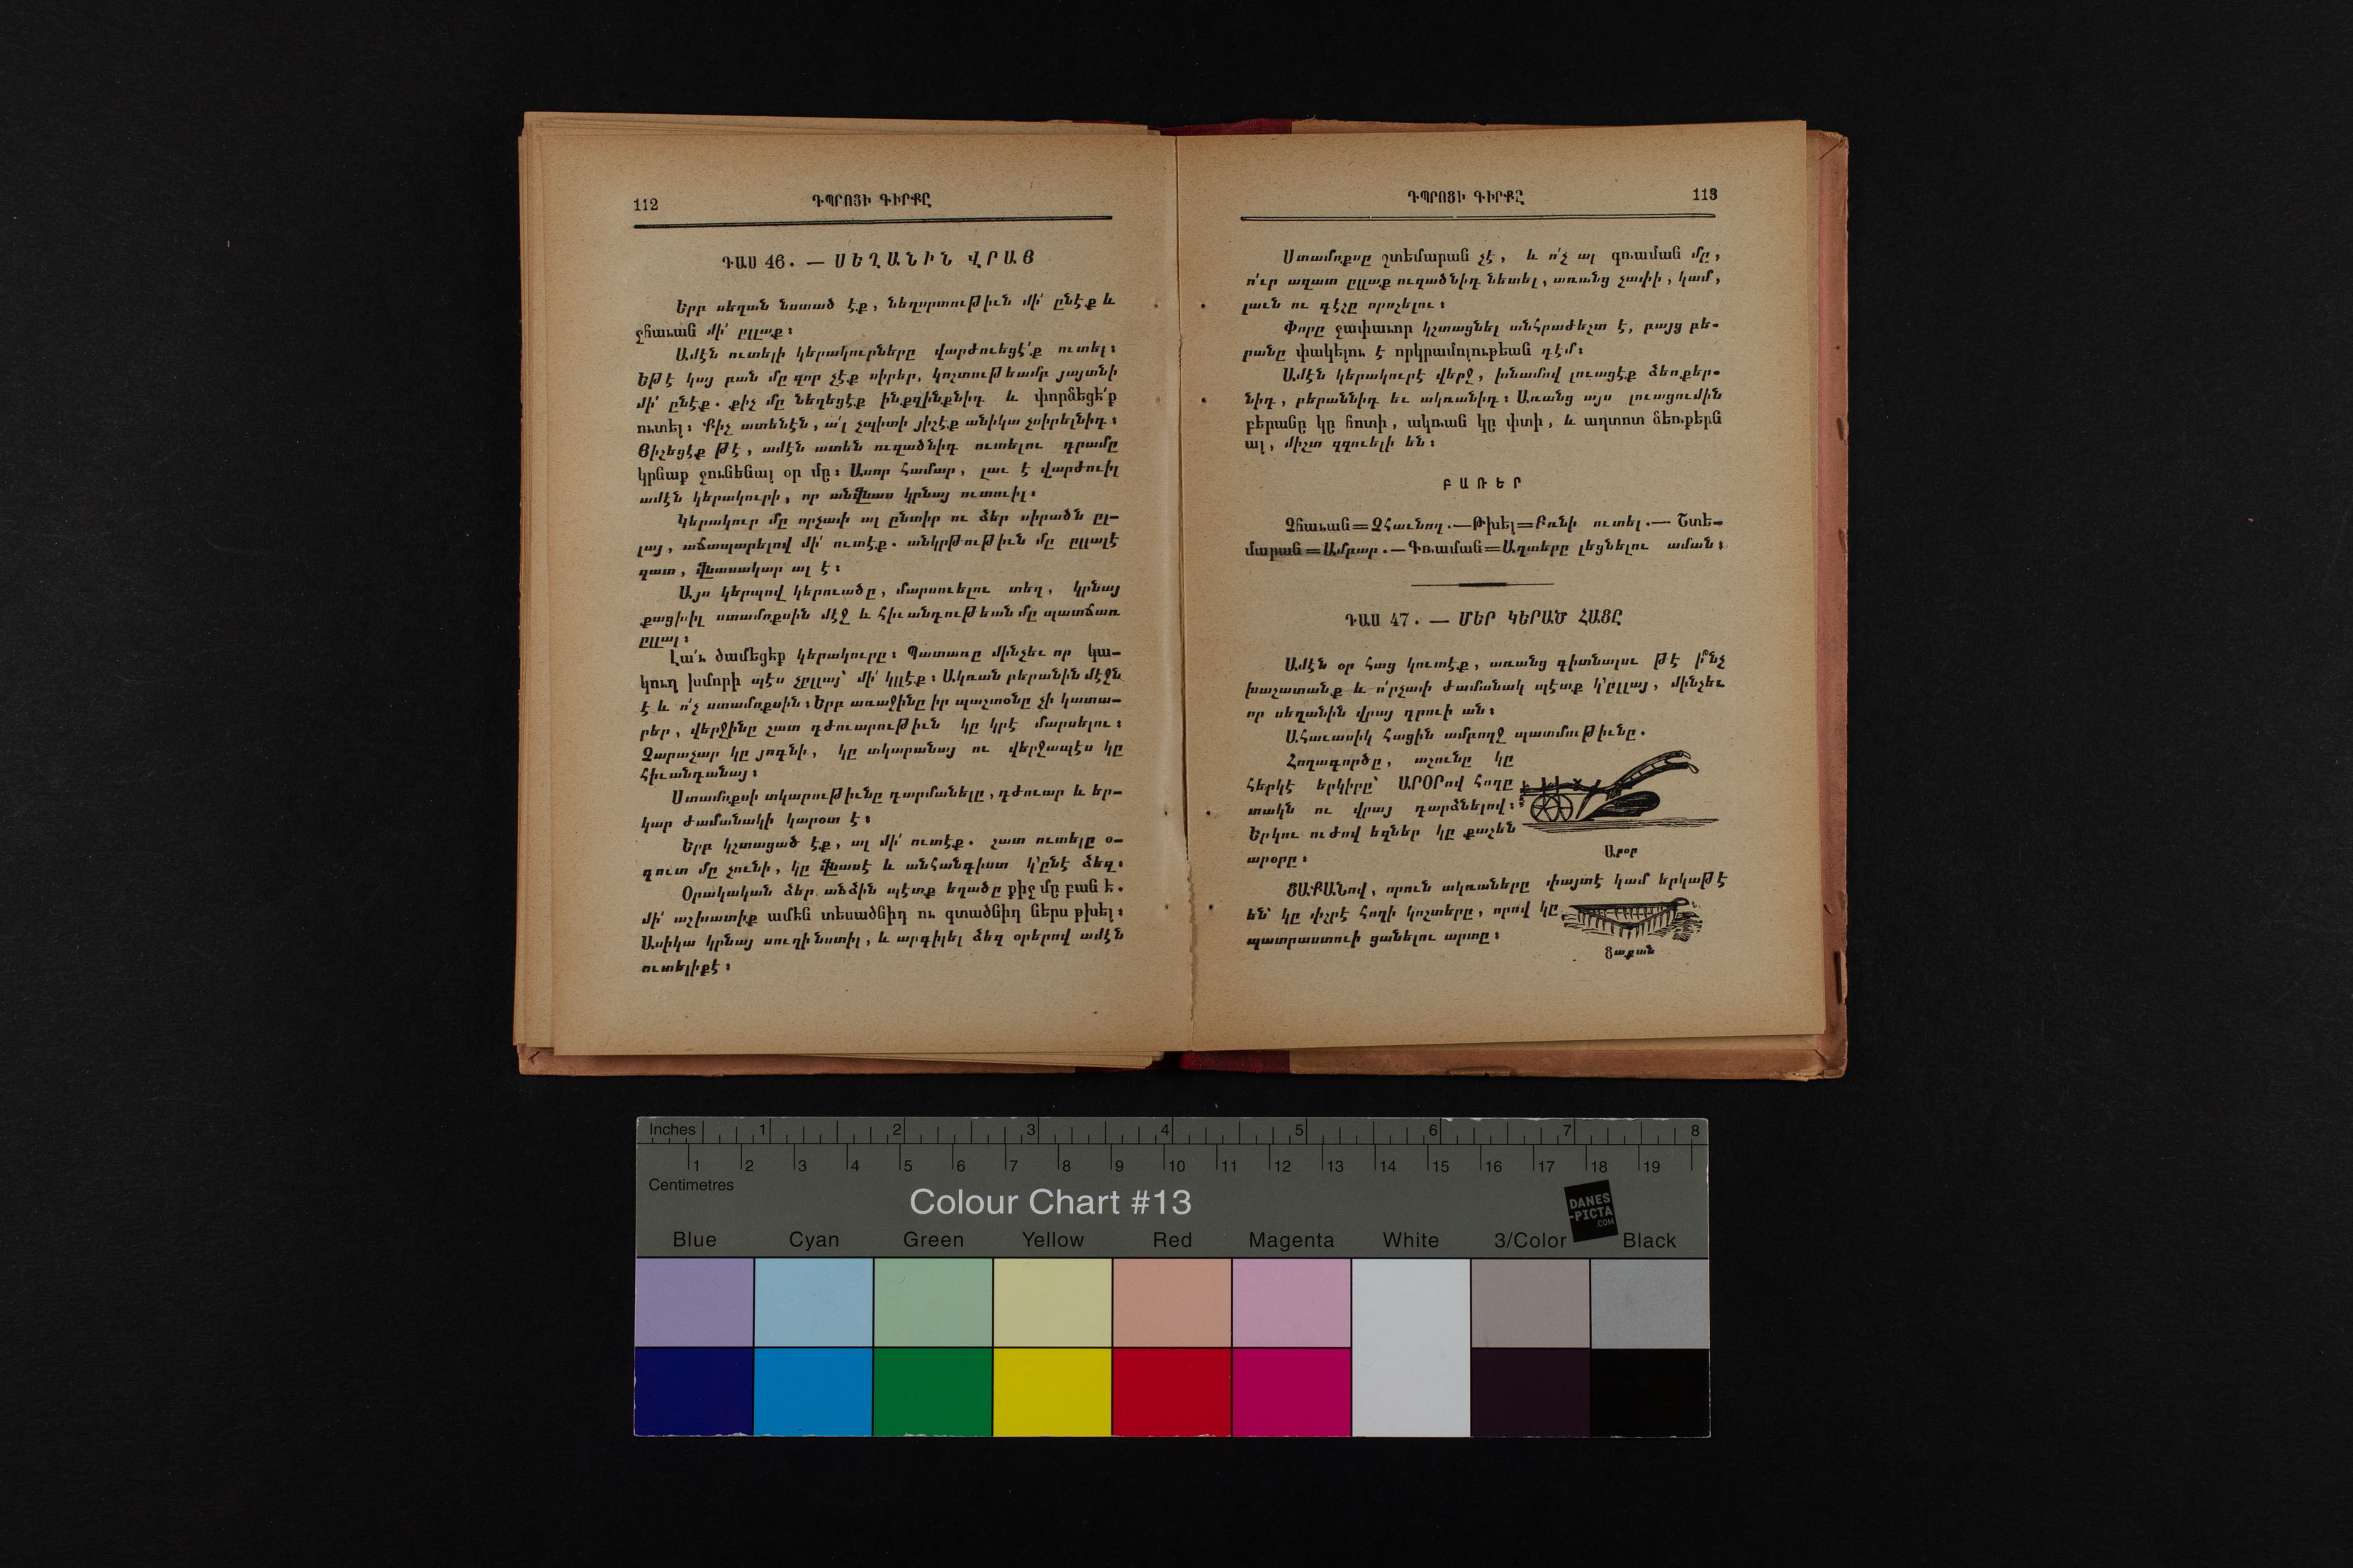 112
ԴՊՐՈՑԻ ԳԻՐՔԸ
ԴԱՍ 46. — ՍԵՂԱՆԻՆ ՎՐԱՅ
Երբ սեղան նստած էք, նեղսրտութիւն մի՛ ընէք և
ջհաւան մի՛ ըլլաք։
Ամէն ուտելի կերակուրները վարժուեցէ՛ք ուտել։
Եթէ կայ բան մը զոր չէք սիրեր, կոշտութեամբ յայտնի
մի՛ ընէք. քիչ մը նեղեցէք ինքզինքնիդ և փորձեցե՛ք
ուտել։ Քիչ ատենէն, ա՛լ չպիտի յիշէք անիկա չսիրելնիդ։
Յիշեցէք թէ, ամէն ատեն ուզածնիդ ուտելու դրամը
կրնաք չունենալ օր մը։ Ասոր համար, լաւ է վարժուիլ
ամէն կերակուրի, որ անվնաս կրնայ ուտուիլ։
Կերակուր մը որչափ ալ ընտիր ու ձեր սիրածն ըլ-
լայ, աճապարելով մի՛ ուտէք. անկրթութիւն մը ըլլալէ
զատ, վնասակար ալ է։
Այս կերպով կերուածը, մարսուելու տեղ, կրնայ
քացխիլ ստամոքսին մէջ և հիւանդութեան մը պատճառ
ըլլալ։
Լա՛ւ ծամեցեք կերակուրը։ Պատառը մինչեւ որ կա-
կուղ խմորի պէս չըլլայ՝ մի՛ կլլէք։ Ակռան բերանին մէջն
է և ո՛չ ստամոքսին։ Երբ առաջինը իր պաշտօնը չի կատա-
րեր, վերջինը շատ դժուարութիւն կը կրէ մարսելու։
Չարաչար կը յոգնի, կը տկարանայ ու վերջապէս կը
հիւանդանայ։
Ստամոքսի տկարութիւնը դարմանելը, դժուար և եր-
կար ժամանակի կարօտ է։
Երբ կշտացած էք, ալ մի՛ ուտէք. շատ ուտելը օ-
գուտ մը չունի, կը վնասէ և անհանգիստ կ՚ընէ ձեզ։
Օրական ձեր անձին պէտք եղածը քիչ մը բան է.
մի՛ աշխատիք ամեն տեսածնիդ ու գտածնիդ ներս թխել։
Ասիկա կրնայ սուղի նստիլ, և արգիլել ձեզ օրերով ամէն
ուտելիքէ։
ԴՊՐՈՑԻ ԳԻՐՔԸ
113
Ստամոքսը շտեմարան չէ, և ո՛չ ալ գռաման մը,
ո՛ւր ազատ ըլլաք ուզածնիդ նետել, առանց չափի, կամ,
լաւն ու գէշը որոշելու։
Փորը չափաւոր կշտացնել անհրաժեշտ է, բայց բե-
րանը փակելու է որկրամոլութեան դէմ։
Ամէն կերակուրէ վերջ, խնամով լուացէք ձեռքեր-
նիդ, բերաննիդ եւ ակռանիդ։ Առանց այս լուացումին
բերանը կը հոտի, ակռան կը փտի, և աղտոտ ձեռքերն
ալ, միշտ զզուելի են։
ԲԱՌԵՐ
Ջհաւան=Չհաւնող.—Թխել=Բռնի ուտել.— Շտե-
մարան=Ամբար.—Գռաման=Աղտերը լեցնելու աման։
ԴԱՍ 47. — ՄԵՐ ԿԵՐԱԾ ՀԱՑԸ
Ամէն օր հաց կուտէք, առանց գիտնալու թէ ի՞նչ
խաչատանք և ո՛րչափ ժամանակ պէտք կ՚ըլլայ, մինչեւ
որ սեղանին վրայ դրուի ան։
Ահաւասիկ հացին ամբողջ պատմութիւնը.
Հողագործը, աշունը կը
հերկէ երկիրը՝ ԱՐՕՐով հողը
տակն ու վրայ դարձնելով։
Երկու ուժով եզներ կը քաշեն
արօրը։
Արօր
ՑԱՔԱՆով, որուն ակռաները փայտէ կամ երկաթէ
են՝ կը փշրէ հողի կոշտերը, որով կը
պատրաստուի ցանելու արտը։
Ցաքան
Inches 1 2 3 4 5 6 7 8
1 2 3 4 5 6 7 8 9 10 11 12 13 14 15 16 17 18 19
Centimetres
Colour Chart #13
DANES
-PICTA
.COM
Blue Cyan Green Yellow Red Magenta White 3/Color Black